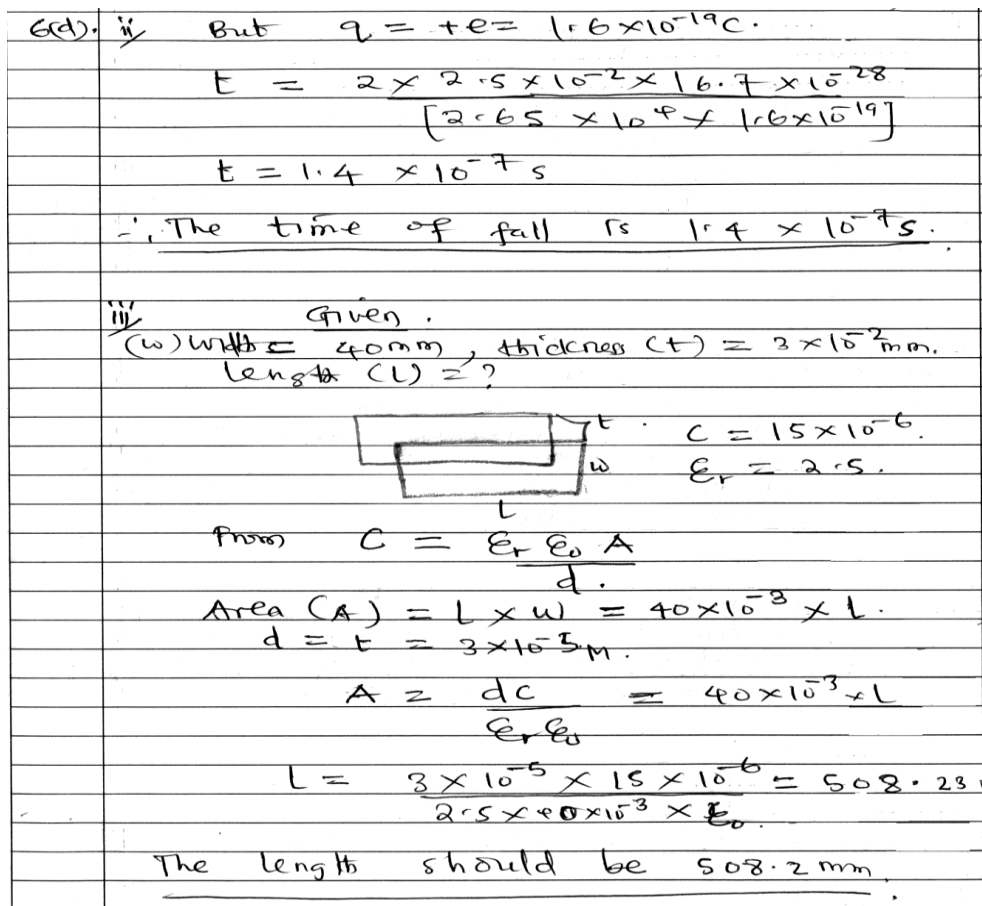 6(d). ii/ But q = +e = 1.6×10⁻¹⁹C.
t = 2 × 2.5 × 10⁻² × 16.7 × 10⁻²⁸
[2.65 × 10⁴ × 1.6×10⁻¹⁹]
t = 1.4 × 10⁻⁷ s
∴ The time of fall is 1.4 × 10⁻⁷s.
iii/ Given.
(w) width = 40mm, thickness (t) = 3×10⁻²mm.
length (L) = ?
t. C = 15×10⁻⁶.
w εr = 2.5.
L
From C = εr ε₀ A
d.
Area (A) = L × w = 40×10⁻³ × L.
d = t = 3×10⁻⁵M.
A = dc = 40×10⁻³ × L
εr ε₀
L = 3 × 10⁻⁵ × 15 × 10⁻⁶ = 508.23
2.5×40×10⁻³ × ε₀.
The length should be 508.2 mm.